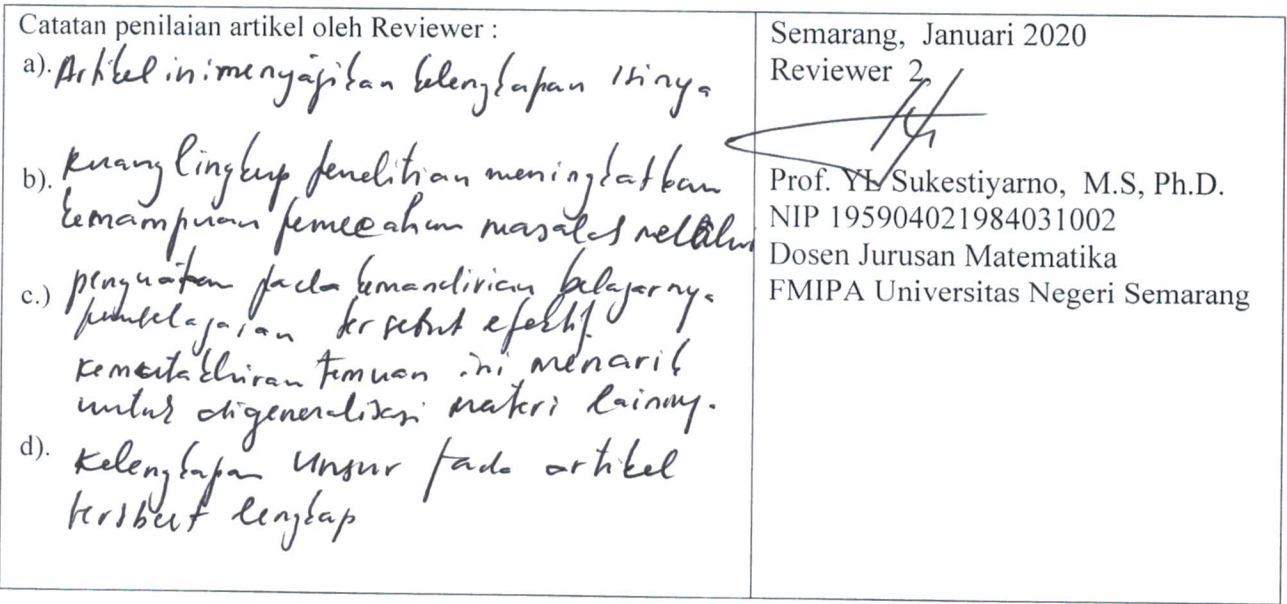 Catatan penilaian artikel oleh Reviewer :
a). Artikel ini menyajikan kelengkapan isinya
b). Ruang lingkup penelitian meningkatkan
kemampuan pemecahan masalah melalui
c.) penguatan pada kemandirian belajarnya
pembelajaran tersebut efektif.
kemutakhiran temuan ini menarik
untuk digeneralisasi materi lainnya.
d). Kelengkapan unsur pada artikel
tersebut lengkap
Semarang, Januari 2020
Reviewer 2,
Prof. YL Sukestiyarno, M.S, Ph.D.
NIP 195904021984031002
Dosen Jurusan Matematika
FMIPA Universitas Negeri Semarang